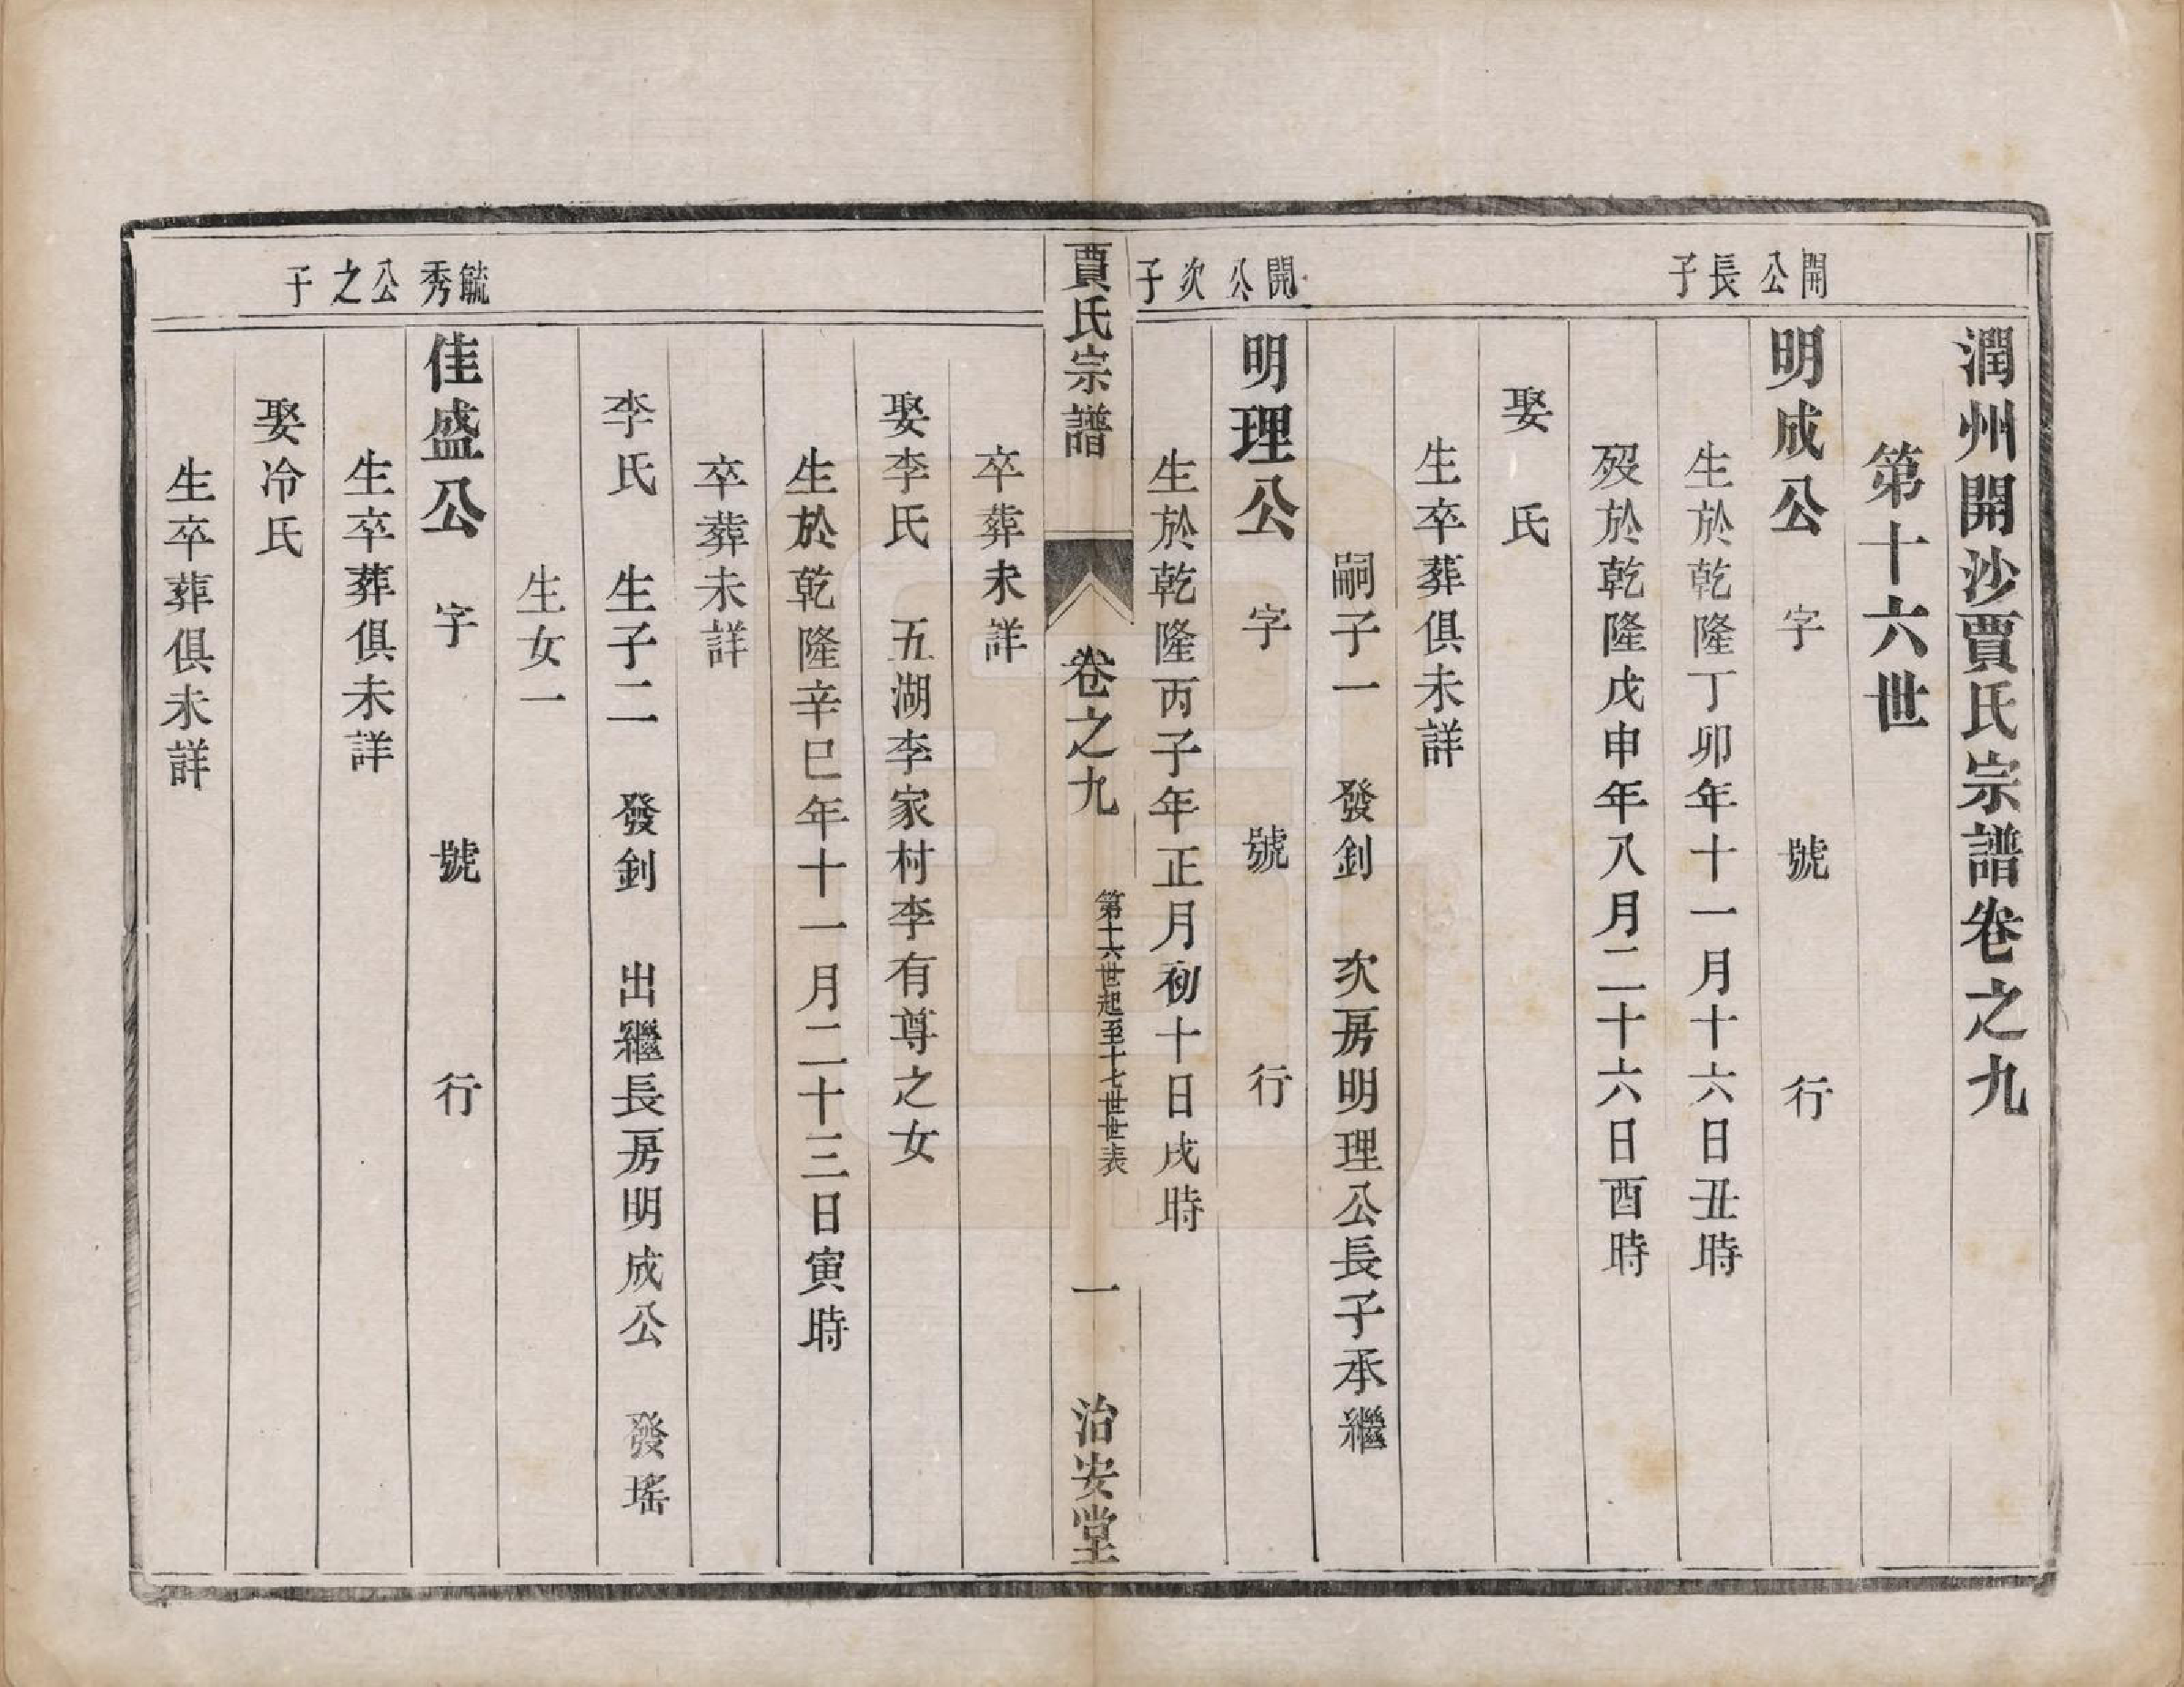 潤州開沙賈氏宗譜卷之九
第十六世
開公長子
明成公　字　號　行
生於乾隆丁卯年十一月十六日丑時
歿於乾隆戊申年八月二十六日酉時
娶　氏
生卒葬俱未詳
嗣子一　發釗　次房明理公長子承繼
開公次子
明理公　字　號　行
生於乾隆丙子年正月初十日戌時
賈氏宗譜　卷之九　第十六世起至十七世世表　一　治安堂
卒葬未詳
娶李氏　五湖李家村李有尊之女
生於乾隆辛巳年十一月二十三日寅時
卒葬未詳
李氏　生子二　發釗　出繼長房明成公　發瑤
生女一
毓秀公之子
佳盛公　字　號　行
生卒葬俱未詳
娶冷氏
生卒葬俱未詳